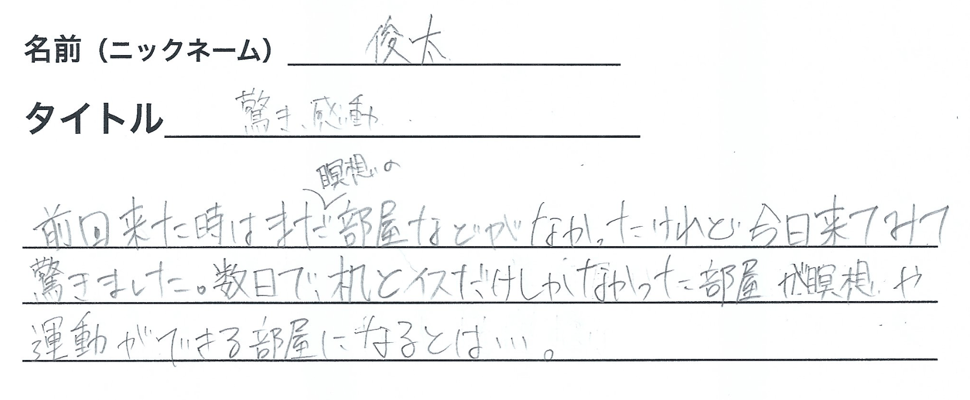 名前（ニックネーム） 俊太
タイトル 驚き、感動
瞑想の
前回来た時はまだ部屋などがなかったけれど今日来てみて
驚きました。数日で、机とイスだけしかなかった部屋が瞑想や
運動ができる部屋になるとは…。